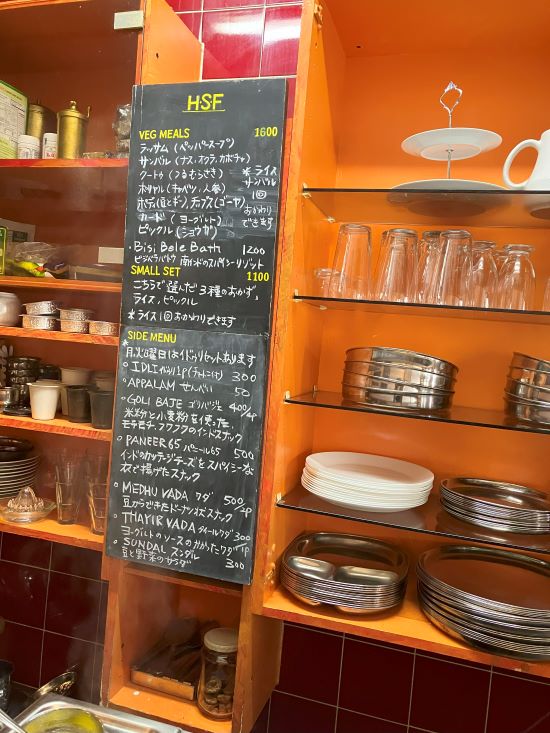 HSF
VEG MEALS 1600
ラッサム (ペッパースープ)
サンバル (ナス・オクラ、カボチャ)
クートゥ (つるむらさき)
ポリヤル (キャベツ、人参)
ボンディ(豆とギー)、チップス(ゴーヤ)
カード (ヨーグルト)
ピックル (ショウガ)
*ライス
サンバル
1回
おかわり
できます
・Bisi Bele Bath 1200
ビシベラバトウ 南インドのスパイシーリゾット
SMALL SET 1100
こちらで選んだ3種のおかず、
ライス、ピックル
*ライス1回おかわりできます
SIDE MENU
*月、火曜日はイドゥリセットあります
*IDLI イドゥリ1P(チャトニ付) 300
*APPALAM せんべい 50
*GOLI BAJE ゴリバジェ 400/4P
米粉と小麦粉を使った
モチモチ、フワフワのインドスナック
*PANEER65 パニール65 500
インドのカッテージチーズをスパイシーな
衣で揚げたスナック
*MEDHU VADA ワダ 500/2P
豆からできたドーナツ状スナック
*THAYIR VADA タイールワダ 300/1P
ヨーグルトのソースのかかったワダ
*SUNDAL スンダル
豆と野菜のサラダ 300